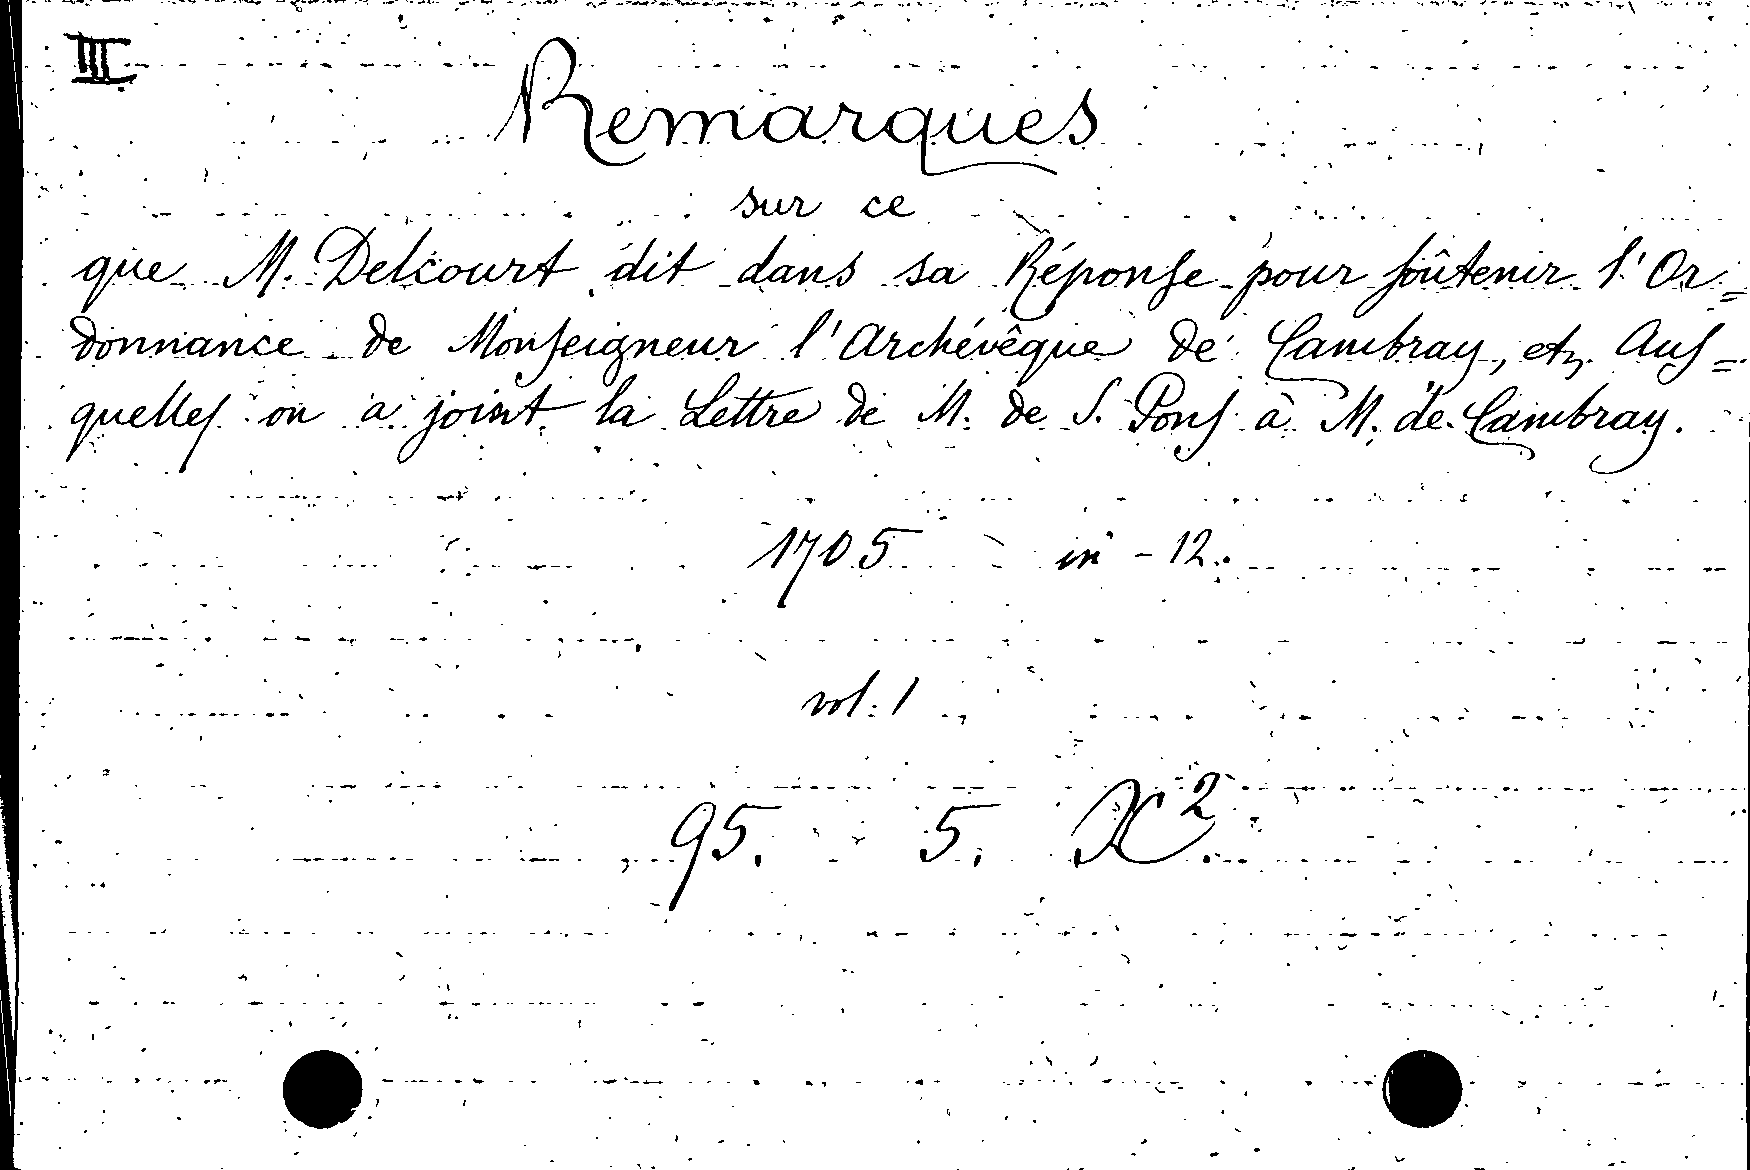 III
Remarques
sur ce
que M. Delcourt dit dans sa Réponse pour soûtenir l'Or=
donnance de Monseigneur l'Archévêque de Cambray, etz. Aus=
quelles on a joint la Lettre de M. de S. Pons à M. de Cambray.
1705 in - 12.
vol: 1
95. 5. X²